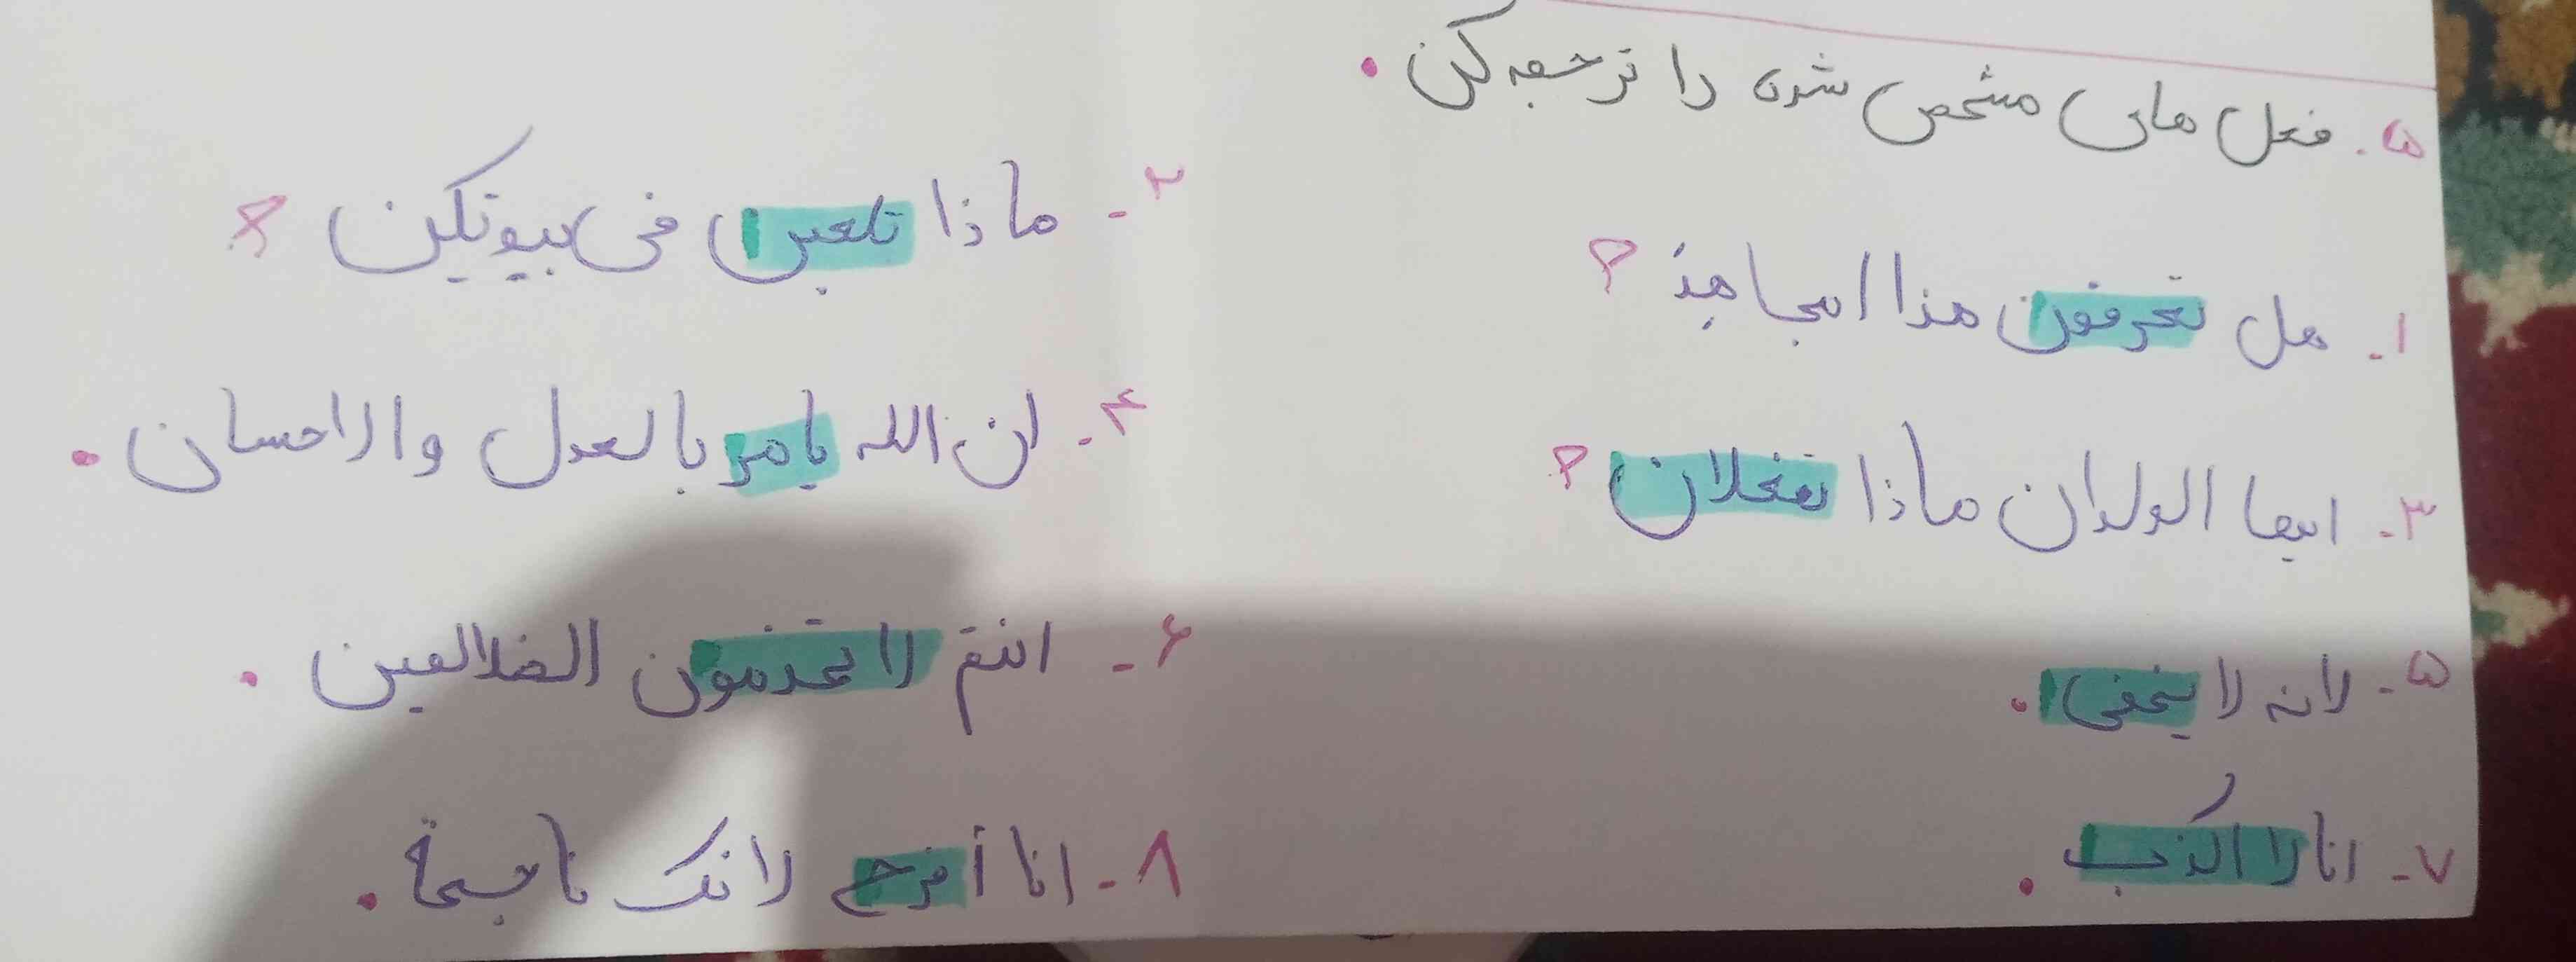 ۵. فعل های مشخص شده را ترجمه کن.
۱- هل تعرفون هذا المجاهد؟
۲- ماذا تلعبن فی بیوتکن؟
۳- ایها الولدان ماذا تفعلان؟
۴- ان الله یامر بالعدل والاحسان.
۵- لانه لا یخفی.
۶- انتم لا تخدمون الظالمین.
۷- انا لا اکذب.
۸- انا أفرح لانک ناجحة.